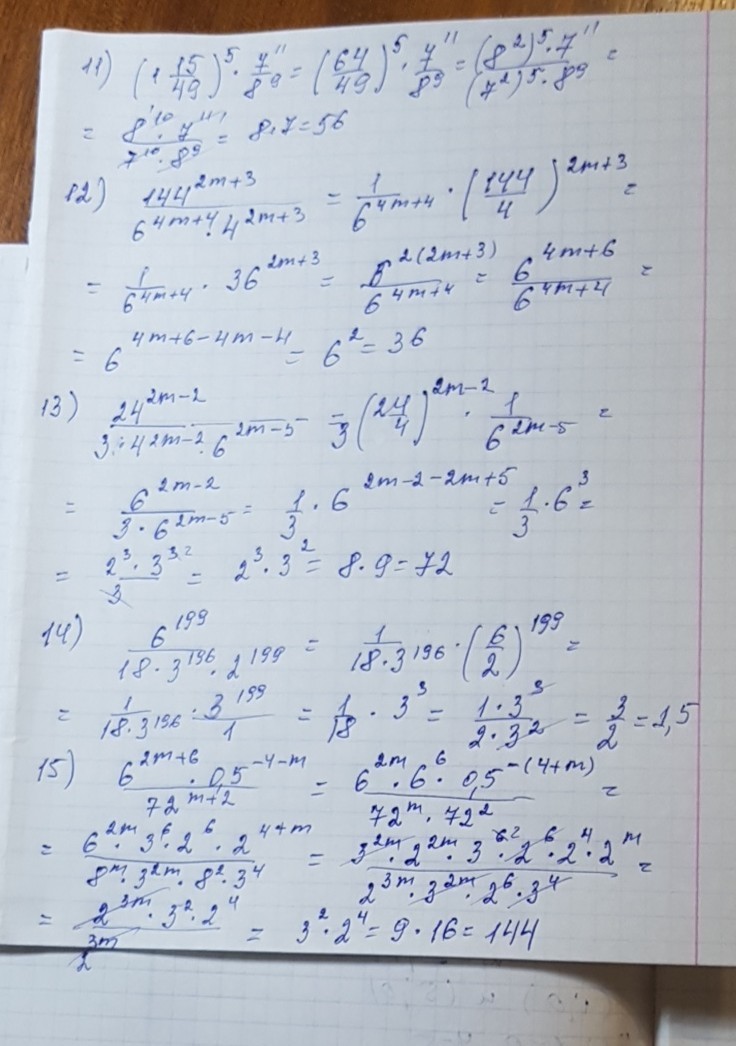 11) (1 15/49)^5 · 7^11/8^9 = (64/49)^5 · 7^11/8^9 = (8^2)^5 · 7^11/(7^2)^5 · 8^9 =
= 8^10 · 7^11/7^10 · 8^9 = 8·7=56
12) 144^(2m+3)/6^(4m+4) · 4^(2m+3) = 1/6^(4m+4) · (144/4)^(2m+3) =
= 1/6^(4m+4) · 36^(2m+3) = 6^(2(2m+3))/6^(4m+4) = 6^(4m+6)/6^(4m+4) =
= 6^(4m+6-4m-4) = 6^2 = 36
13) 24^(2m-2)/3 · 4^(2m-2) · 6^(2m-5) = 1/3 (24/4)^(2m-2) · 1/6^(2m-5) =
= 6^(2m-2)/3 · 6^(2m-5) = 1/3 · 6^(2m-2-2m+5) = 1/3 · 6^3 =
= 2^3 · 3^3/3 = 2^3 · 3^2 = 8·9=72
14) 6^199/18 · 3^196 · 2^199 = 1/18 · 3^196 · (6/2)^199 =
= 1/18 · 3^196 · 3^199/1 = 1/18 · 3^3 = 1 · 3^3/2 · 3^2 = 3/2 = 1,5
15) 6^(2m+6) · 0,5^(-4-m)/72^(m+2) = 6^2m · 6^6 · 0,5^(-(4+m))/72^m · 72^2 =
= 6^2m · 3^6 · 2^6 · 2^(4+m)/8^m · 3^2m · 8^2 · 3^4 = 3^2m · 2^2m · 3^6 · 2^6 · 2^4 · 2^m/2^3m · 3^2m · 2^6 · 3^4 =
= 2^3m · 3^2 · 2^4/2^3m = 3^2 · 2^4 = 9 · 16 = 144